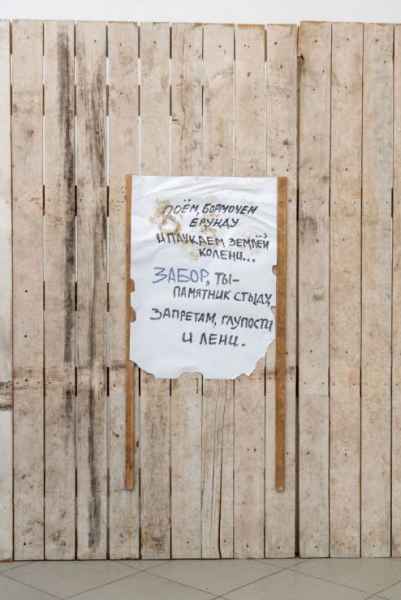 ПОЁМ, БОРМОЧЕМ
ЕРУНДУ
И ПАЧКАЕМ ЗЕМЛЁЙ
КОЛЕНИ...
ЗАБОР, ТЫ-
ПАМЯТНИК СТЫДУ,
ЗАПРЕТАМ, ГЛУПОСТИ
И ЛЕНИ.